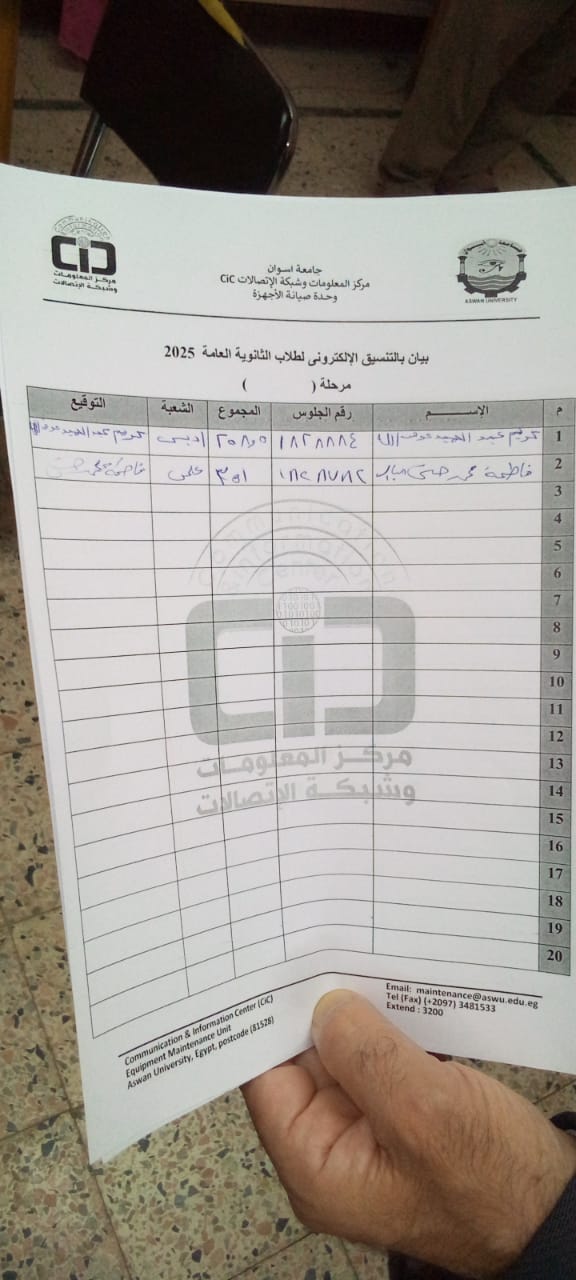 Communication
Information
Center
CiC
مركز المعلومات
وشبكة الإتصالات
جامعة اسوان
مركز المعلومات وشبكة الإتصالات CiC
وحدة صيانة الأجهزة
ASWAN UNIVERSITY
بيان بالتنسيق الإلكترونى لطلاب الثانوية العامة 2025
مرحلة ( )
م الإســـم رقم الجلوس المجموع الشعبة التوقيع
1 كريم عبد الحميد ١٨٢٨٨٨٤ ٢٥٨,٥ ادبى كريم عبد الحميد
2 فاطمة محمد ١٨٢٨٧٨٢ ٣٥١ علمى فاطمة محمد
3
4
5
6
7
8
9
10
11
12
13
14
15
16
17
18
19
20
Communication
Information
Center
CiC
مركز المعلومات
وشبكة الإتصالات
Communication & Information Center (CiC)
Equipment Maintenance Unit
Aswan University, Egypt, postcode (81528)
Email: maintenance@aswu.edu.eg
Tel (Fax) (+2097) 3481533
Extend : 3200